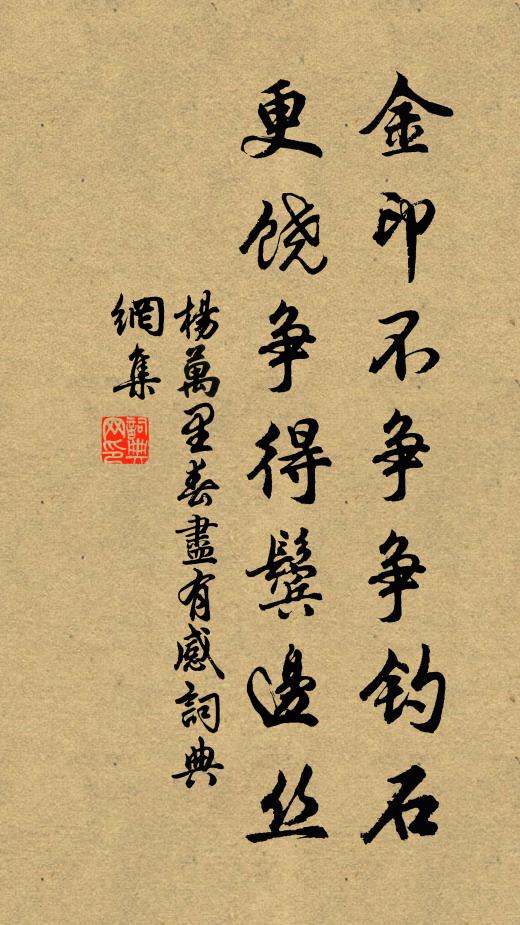 金印不争争钓石
更饶争得鬓邊丝
楊萬里春盡有感詞典
網集
詞典
网印